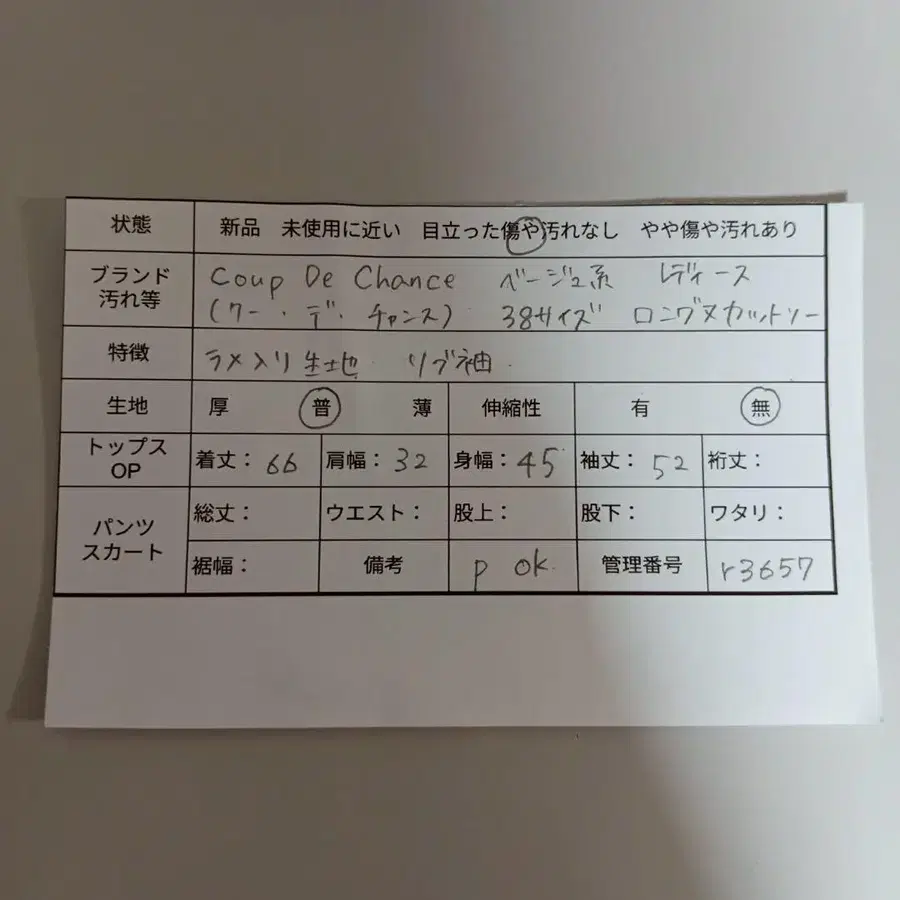 状態 新品 未使用に近い 目立った傷や汚れなし やや傷や汚れあり
ブランド 汚れ等 Coup De Chance ベージュ系 レディース
(クー・デ・チャンス) 38サイズ ロングTカットソー
特徴 ラメ入り生地 リブ袖
生地 厚 普 薄 伸縮性 有 無
トップス OP 着丈: 66 肩幅: 32 身幅: 45 袖丈: 52 裄丈:
パンツ スカート 総丈: ウエスト: 股上: 股下: ワタリ:
裾幅: 備考 p ok. 管理番号 r3657